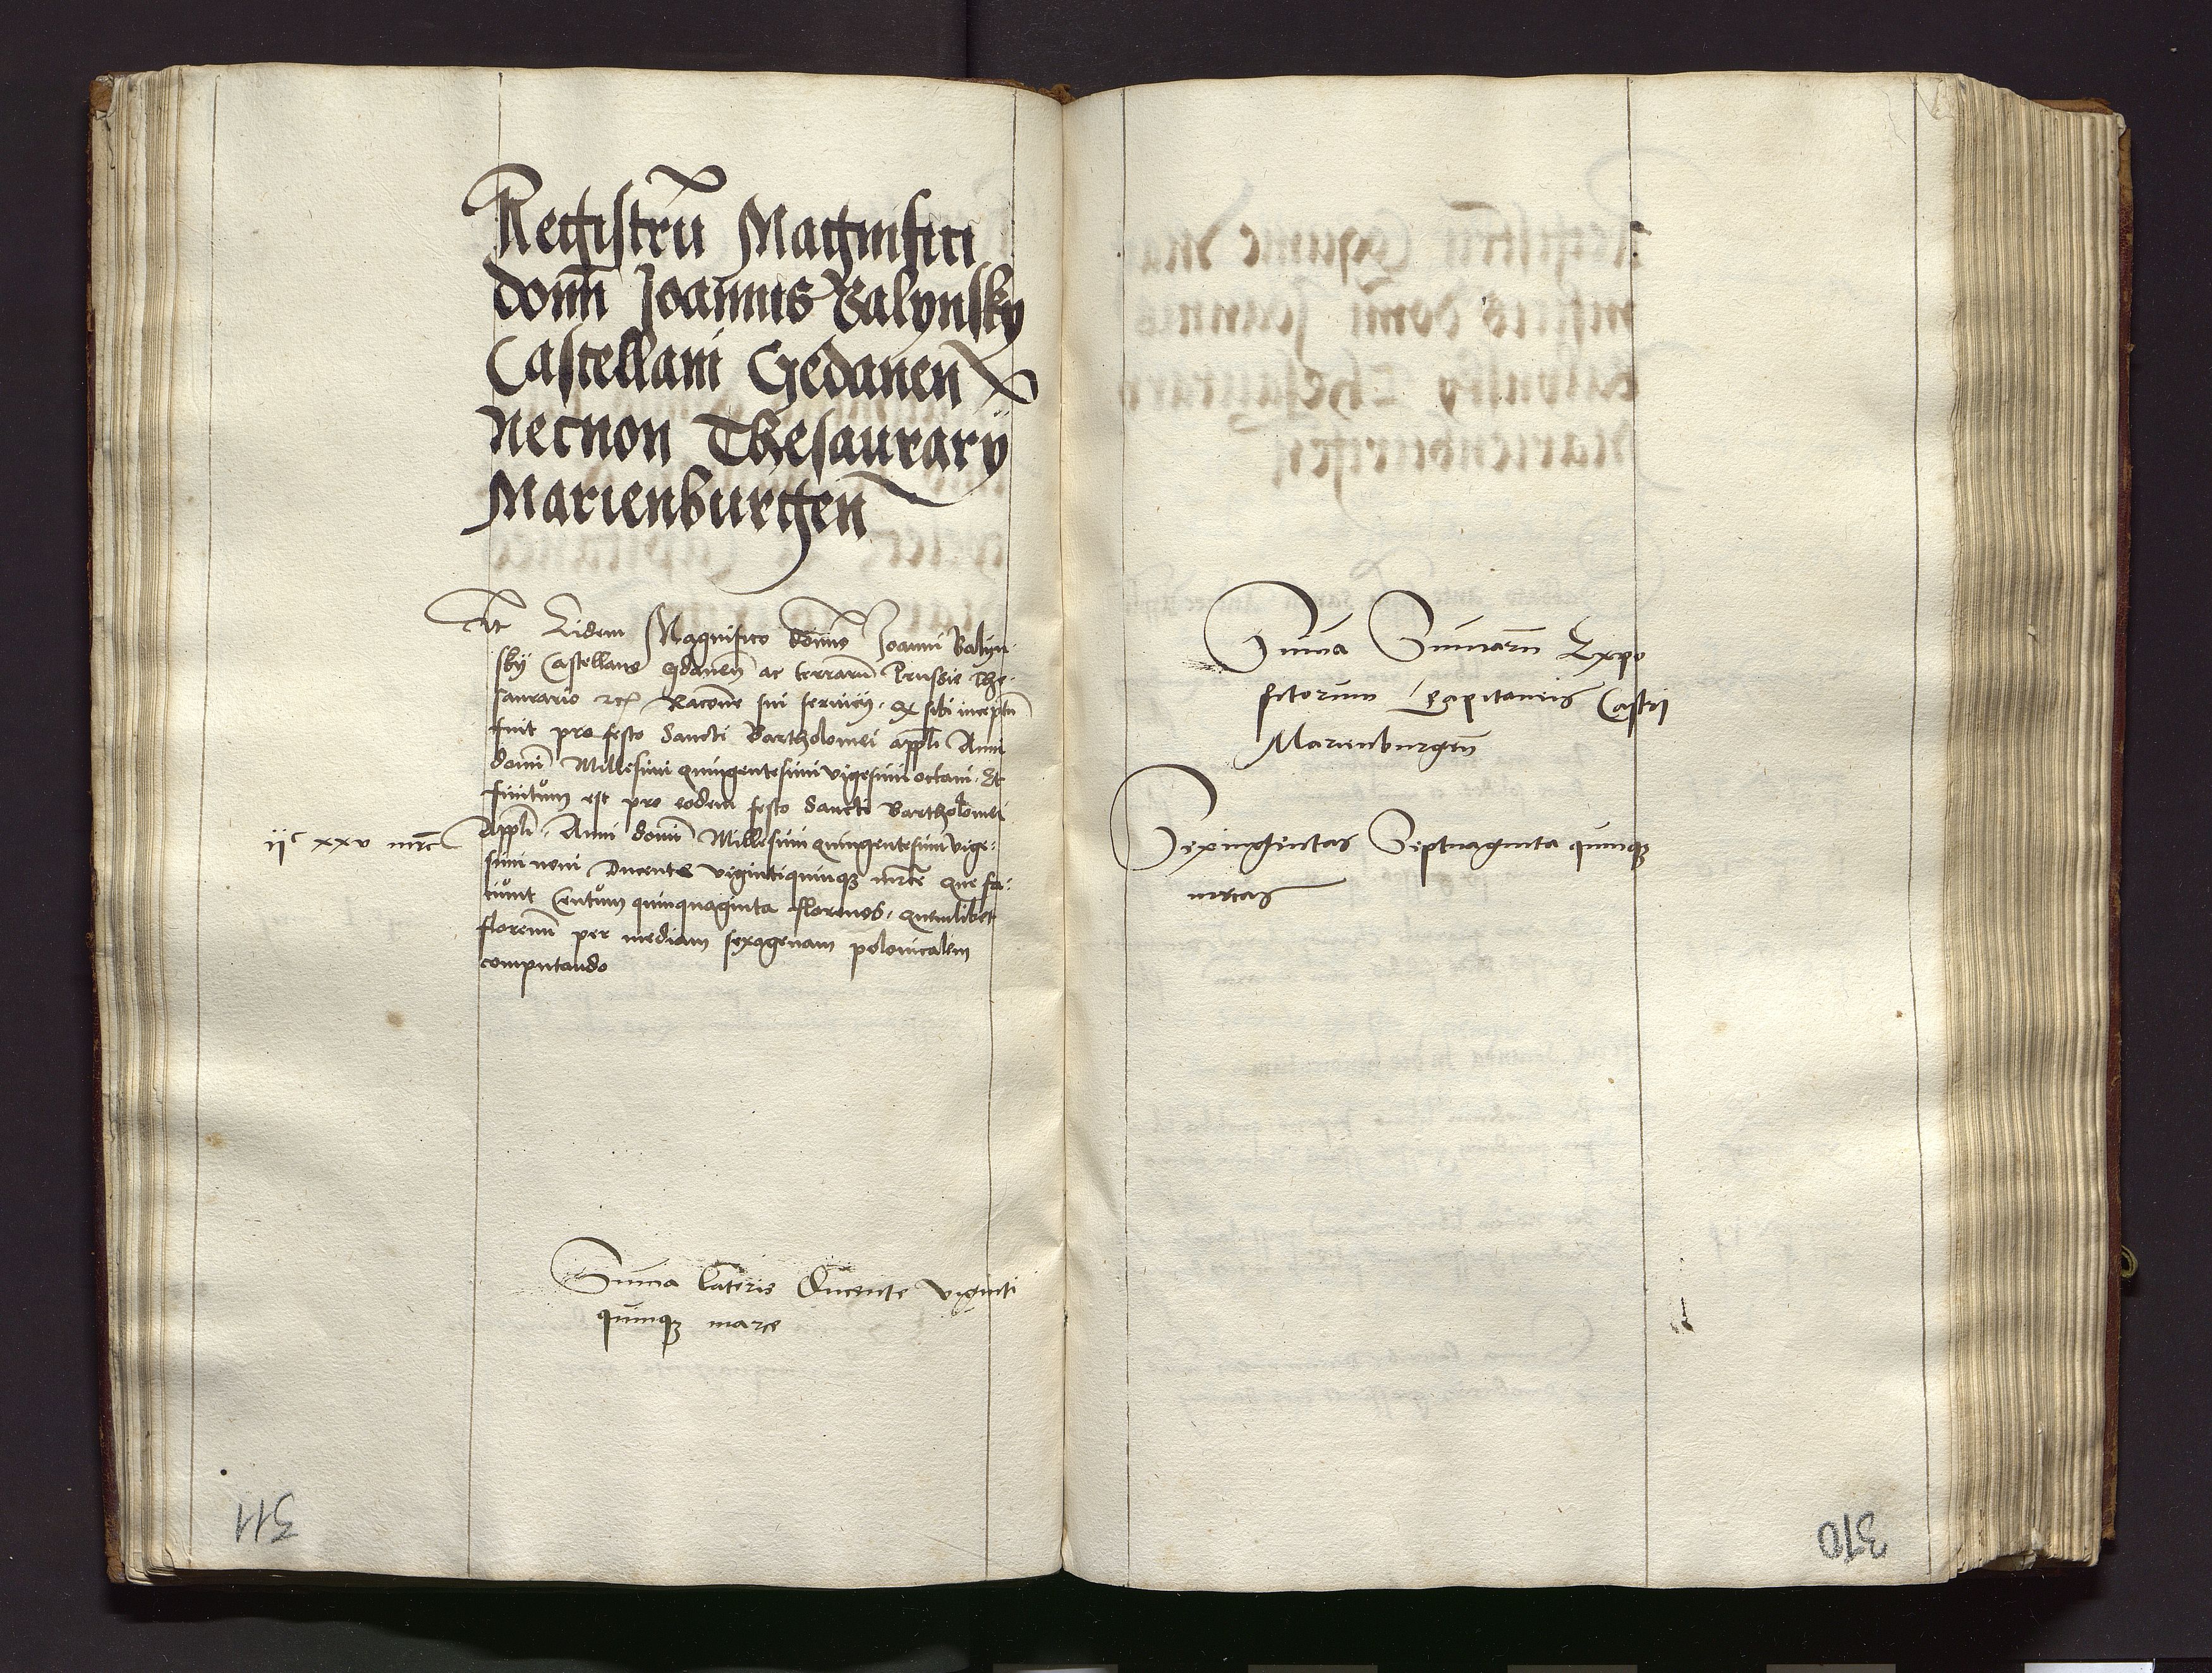 Registrū Magnifici
domī Joannis Balynsky
Castellani Gedanen
Necnon Thesaurarij
Marienburgen
Itē Eidem Magnifico domīo Joanni Balyn-
sky Castellano Gdaneñ ac terrarū Prussie The-
saurario Racōne sui servicij, sibi inceptū
fuit pro festo Sancti Bartholomei appli Anni
domī Millesimi quingentesimi vigesimi octavi. Et
finitum est pro eodem festo Sancti Bartholomei
ijᶜ xxv mrc Appli. Anni domī Millesimi quingentesimi vige-
simi noni Ducente vigintiquinqȝ mrce que fa-
ciunt Centum quinquaginta florenos, quemlibet
florenū per mediam sexagenam polonicalem
computando
Suma Lateris Ducente viginti
quinqȝ marce
311
Suma Sumarū Expo
sitorum Capitaneis Castri
Marienburgeñ
Sexingentas Septuaginta quinqȝ
mrcas
310